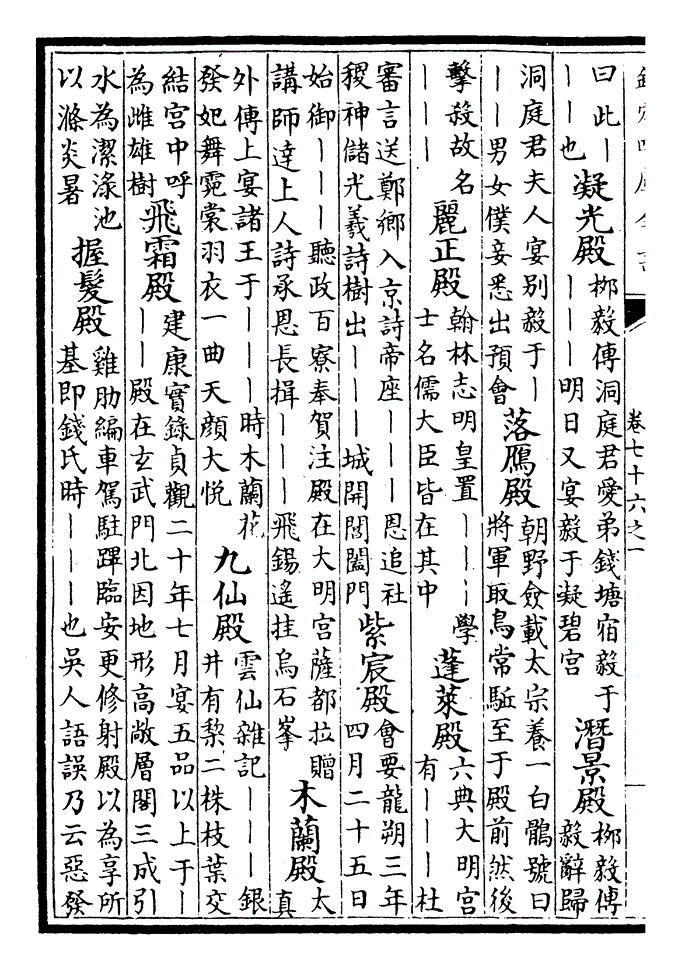 卷七十六之一
曰此｜
｜｜也
凝光殿
柳毅傳洞庭君愛弟錢塘宿毅于
｜｜｜明日又宴毅于凝碧宮
潛景殿
柳毅傳
毅辭歸
洞庭君夫人宴別毅于｜
｜｜男女僕妾悉出預會
落鴈殿
朝野僉載太宗養一白鶻號曰
將軍取鳥常駈至于殿前然後
擊殺故名
｜｜｜
麗正殿
翰林志明皇置｜｜｜學
士名儒大臣皆在其中
蓬萊殿
六典大明宮
有｜｜｜杜
審言送鄭鄉入京詩帝座｜｜｜恩追社
稷神儲光羲詩樹出｜｜｜城開閶闔門
紫宸殿
會要龍朔三年
四月二十五日
始御｜｜｜聽政百寮奉賀注殿在大明宮薩都拉贈
講師達上人詩承恩長揖｜｜｜飛錫遙挂烏石峯
木蘭殿
太
真
外傳上宴諸王于｜｜｜時木蘭花
發妃舞霓裳羽衣一曲天顏大悅
九仙殿
雲仙雜記｜｜｜銀
井有梨二株枝葉交
結宮中呼
為雌雄樹
飛霜殿
建康實錄貞觀二十年七月宴五品以上于｜
｜｜殿在玄武門北因地形高敞層閣三成引
水為潔淥池
以滌炎暑
握髮殿
雞肋編車駕駐蹕臨安更修射殿以為享所
基即錢氏時｜｜｜也吳人語誤乃云惡發